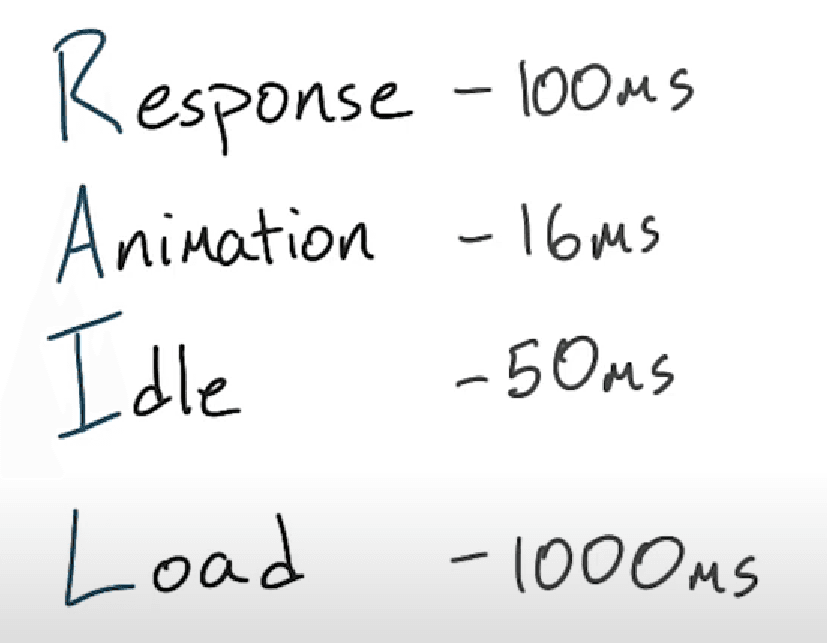 Response - 100ms
Animation - 16ms
Idle - 50ms
Load - 1000ms